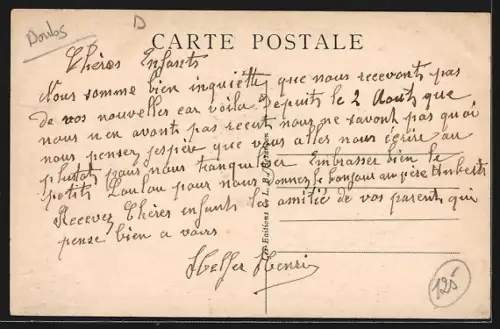 Doubs
D
CARTE POSTALE
Chères Enfants
Nous somme bien inquiette que nous recevont pas
de vos nouvelles car voila depuit le 2 Aout que
nous n'en avont pas recut nous ne savont pas quoi
nous pensez j'espère que vous alles nous écrire au
plutot pour nous tranquiliser Embrasser bien le
petit Loulou pour nous Donnez le bonjour au père Ambert
Recevez Chères enfants les amitié de vos parent qui
pense bien a vous
Henri
Les Editions de L. B.
125